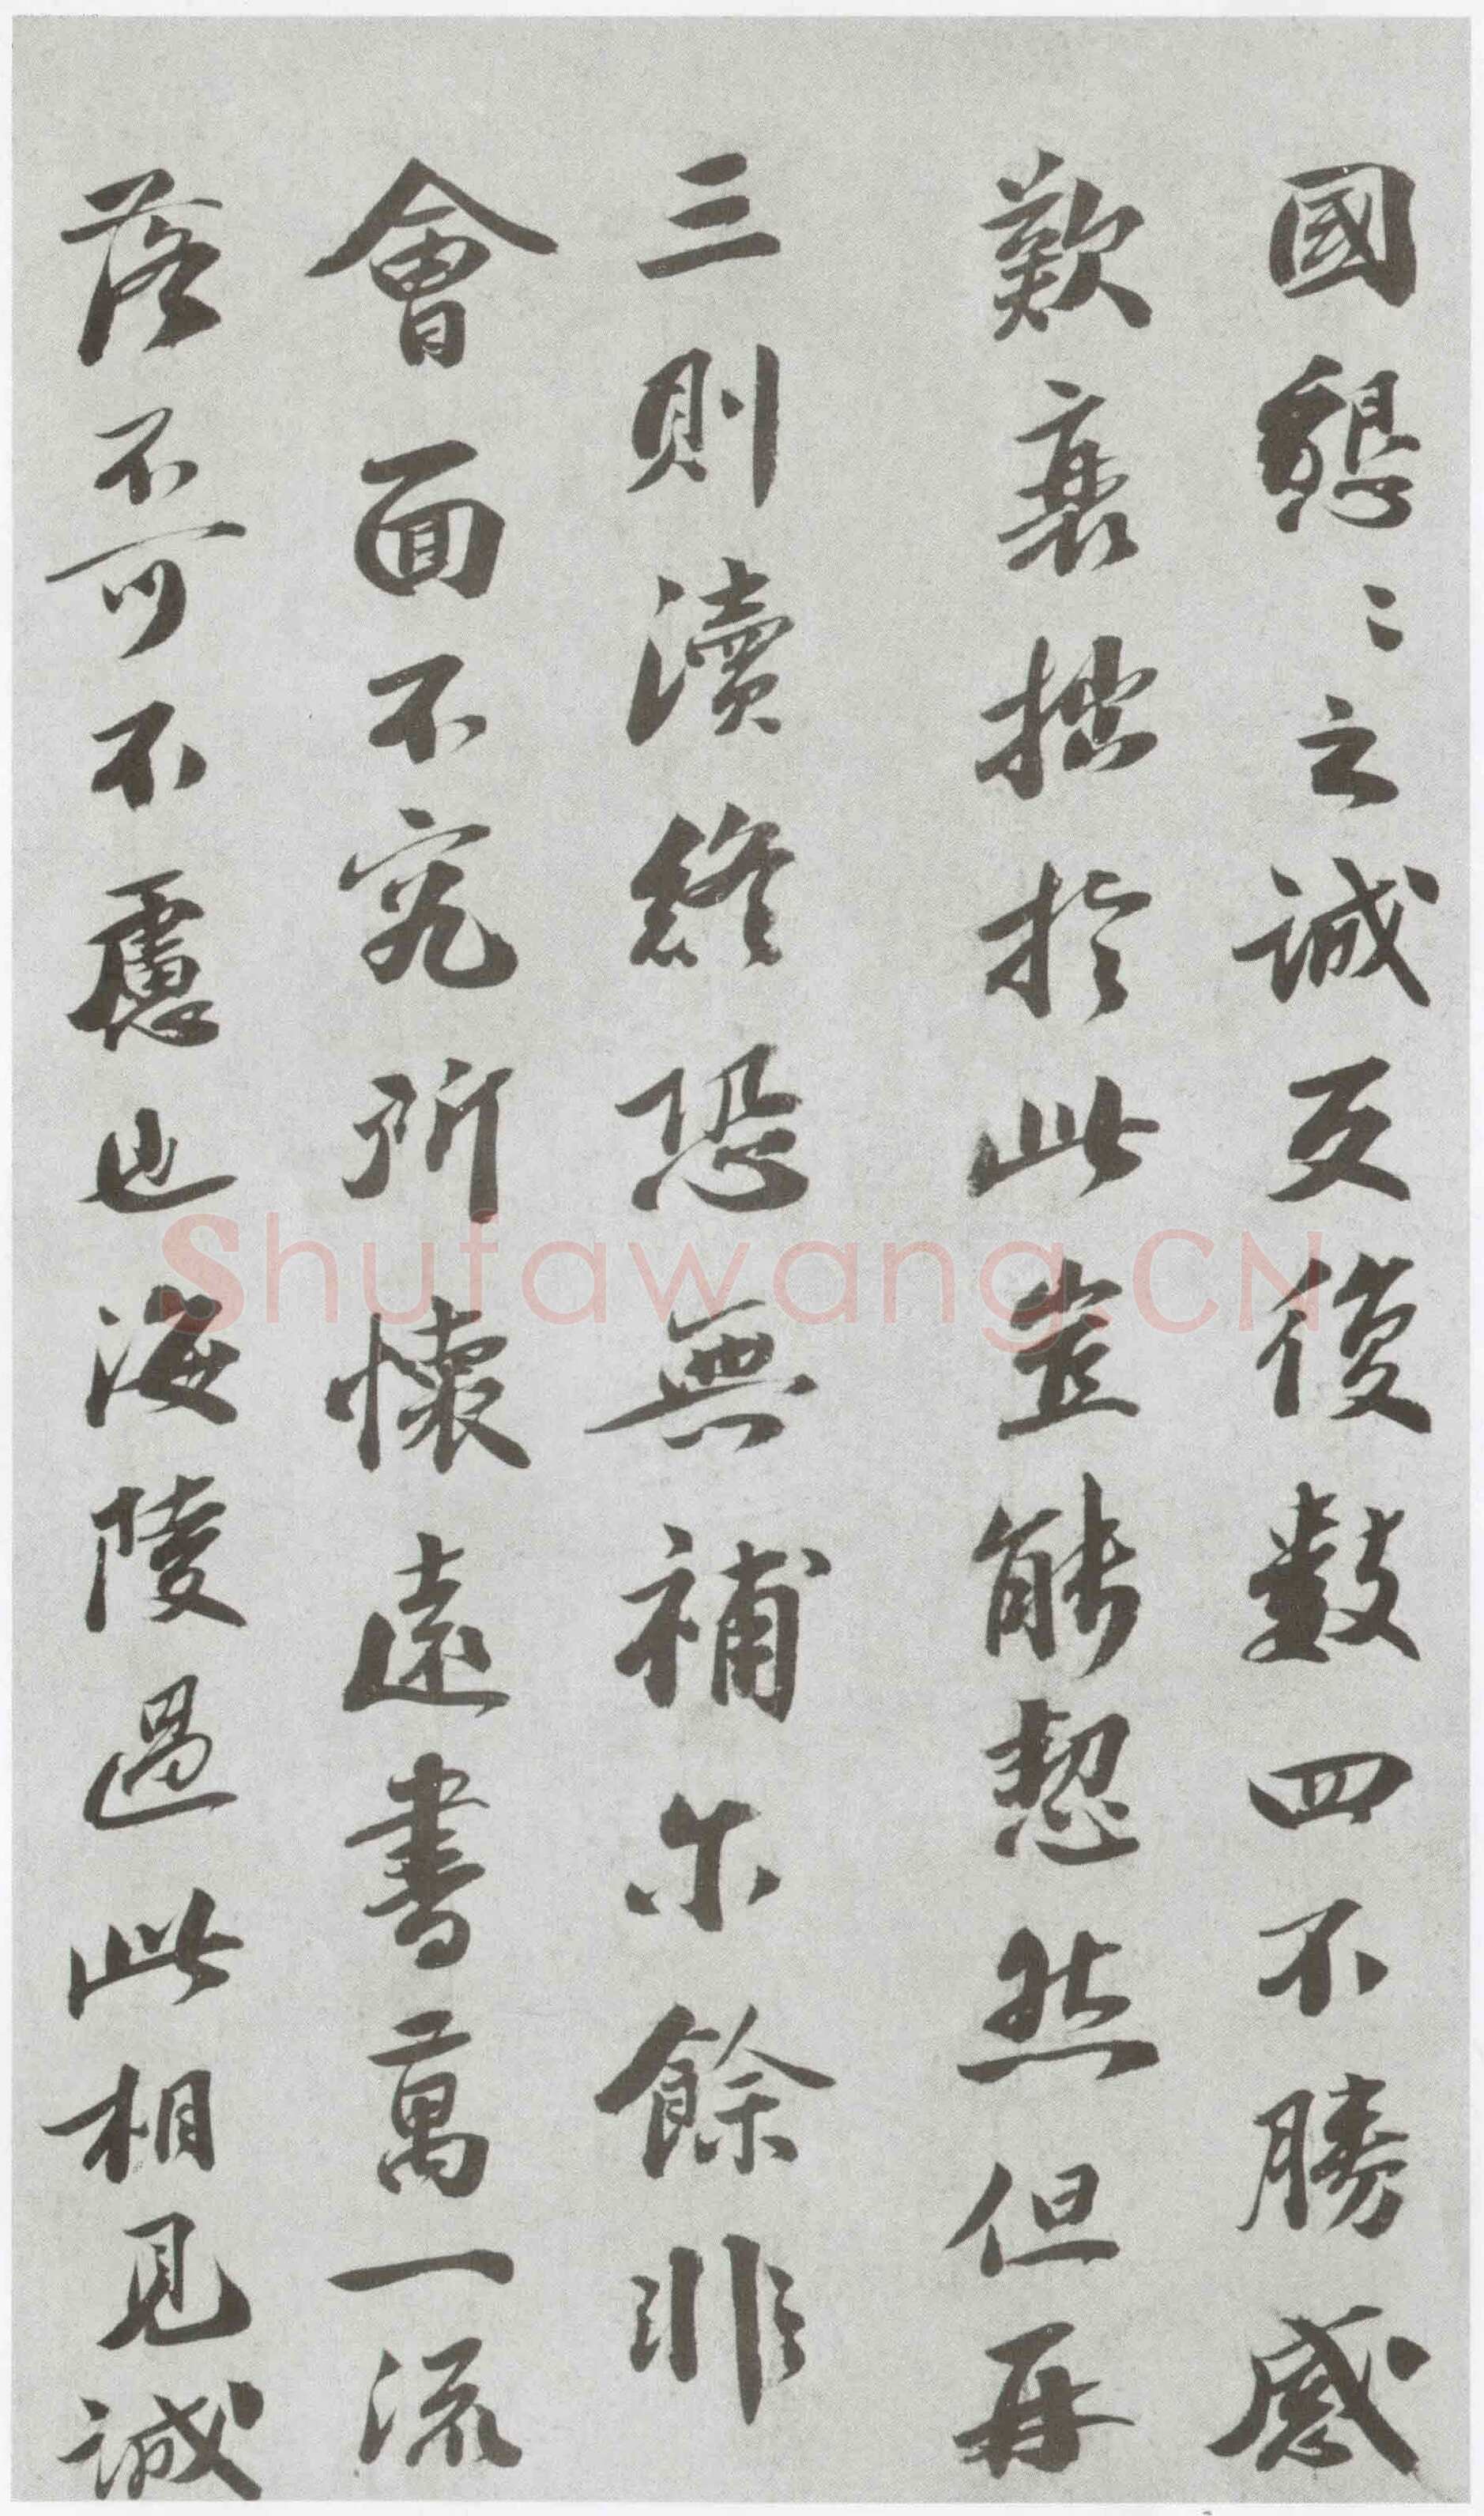 國懇〻之誠反復數四不勝感
歎衰拙於此豈能恝然但再
三則瀆終恐無補尔餘非
會面不究所懷遠書萬一流
落不可不慮也海陵過此相見誠
Shufawang.CN